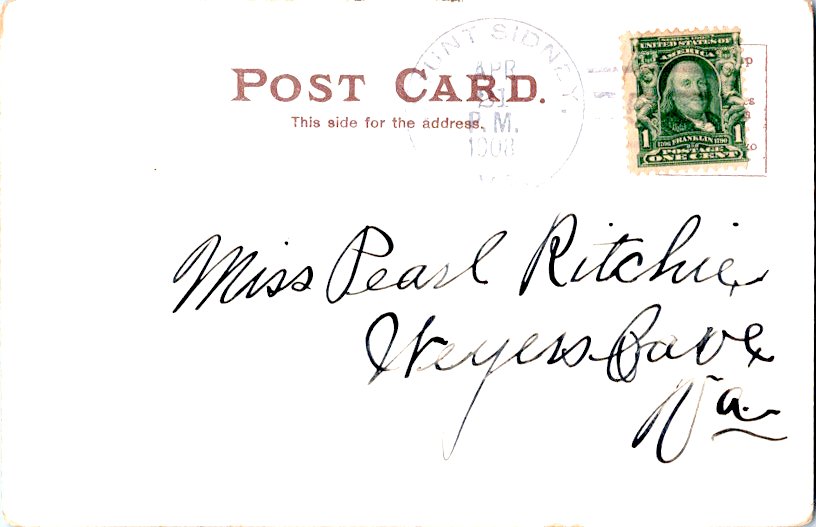 POST CARD.
This side for the address.
UNT SIDNEY,
APR
21
P.M.
1908
SERIES 1902
UNITED STATES OF
AMERICA
1 1
1706 FRANKLIN 1790
POSTAGE
ONE CENT
Miss Pearl Ritchie
Weyers Cave
Va.